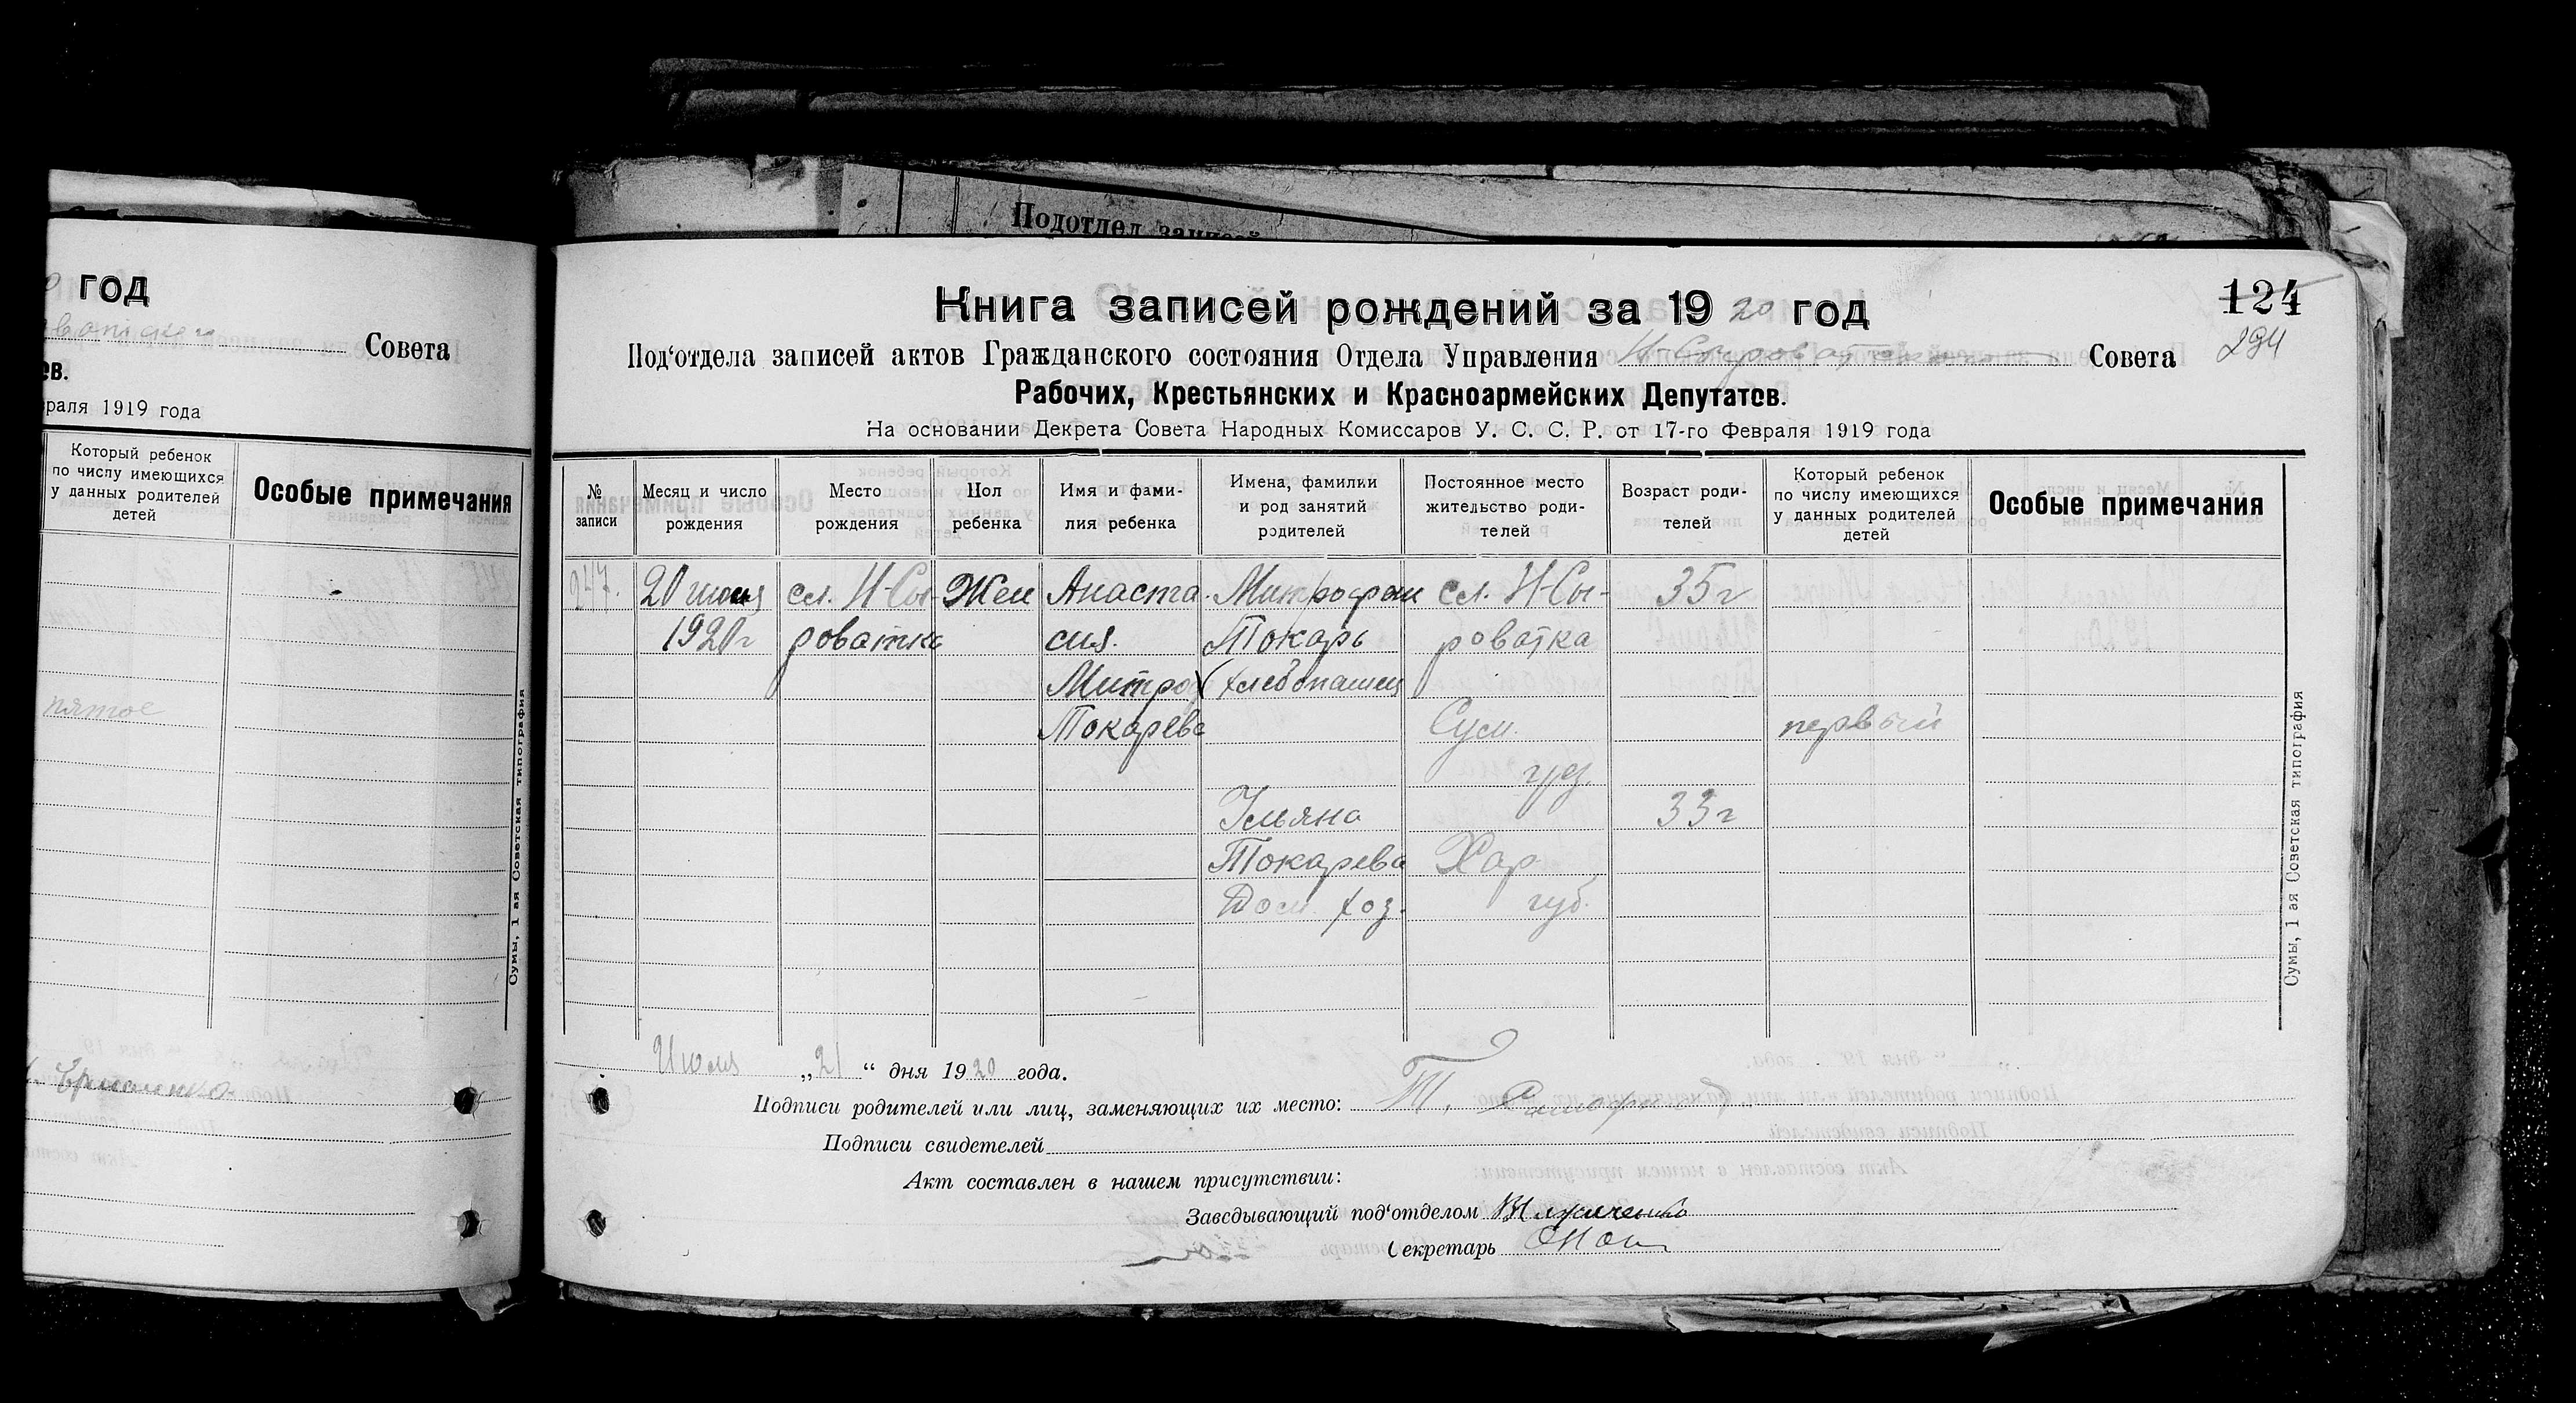 Подотдел записей
год
Совета
ев.
враля 1919 года
Который ребенок
по числу имеющихся
у данных родителей
детей
Особые примечания
пятое
Сумы, 1 ая Советская типография
Книга записей рождений за 1920 год
124
294
Под‘отдела записей актов Гражданского состояния Отдела Управления Н-Сыроватского Совета
Рабочих, Крестьянских и Красноармейских Депутатов.
На основании Декрета Совета Народных Комиссаров У. С. С. Р. от 17-го Февраля 1919 года
№
записи
Месяц и число
рождения
Место
рождения
Пол
ребенка
Имя и фами-
лия ребенка
Имена, фамилии
и род занятий
родителей
Постоянное место
жительство роди-
телей
Возраст роди-
телей
Который ребенок
по числу имеющихся
у данных родителей
детей
Особые примечания
247.
20 июля
1920 г
сл. Н-Сы-
роватка
Жен
Анаста-
сия.
Митроф
Токарева
Митрофан
Токарь
(хлебопашец
Ульяна
Токарева
Дом. хоз.
сл. Н-Сы-
роватка
Сум.
уез.
Хар
губ.
35 г
33 г
первый
Сумы, 1 ая Советская типография
Июля „21“ дня 1920 года.
Подписи родителей или лиц, заменяющих их место: Т.
Подписи свидетелей
Акт составлен в нашем присутствии:
Заведывающий под‘отделом
Секретарь